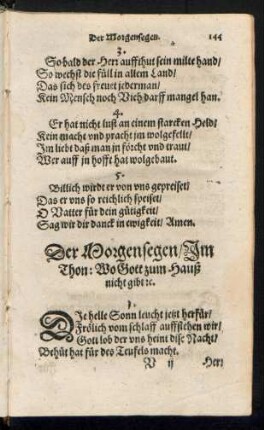 Der Morgensegen.
144
3.
So bald der Herr auffthut sein milte hand/
So wechst die füll in allem Land/
Das sich des frewt jederman/
Kein Mensch noch Viehdarff mangel han.
4.
Er hat nicht lust an einem starcken Held/
Kein macht vnd pracht jm wolgefellt/
Im liebt daß man jn förcht vnd traut/
Wer auff jn hofft hat wolgebaut.
5.
Billich wirdt er von vns gepreiset/
Das er vns so reichlich speiset/
O Vatter für dein gütigkeit/
Sag wir dir danck in ewigkeit/ Amen.
Der Morgensegen/Im
Thon: Wo Gott zum Hauß
nicht gibt ꝛc.
1.
DIe helle Sonn leucht jetzt herfür/
Frölich vom schlaff auffstehen wir/
Gott lob der vns heint dise Nacht/
Behüt hat für des Teufels macht.
V ij
Herr